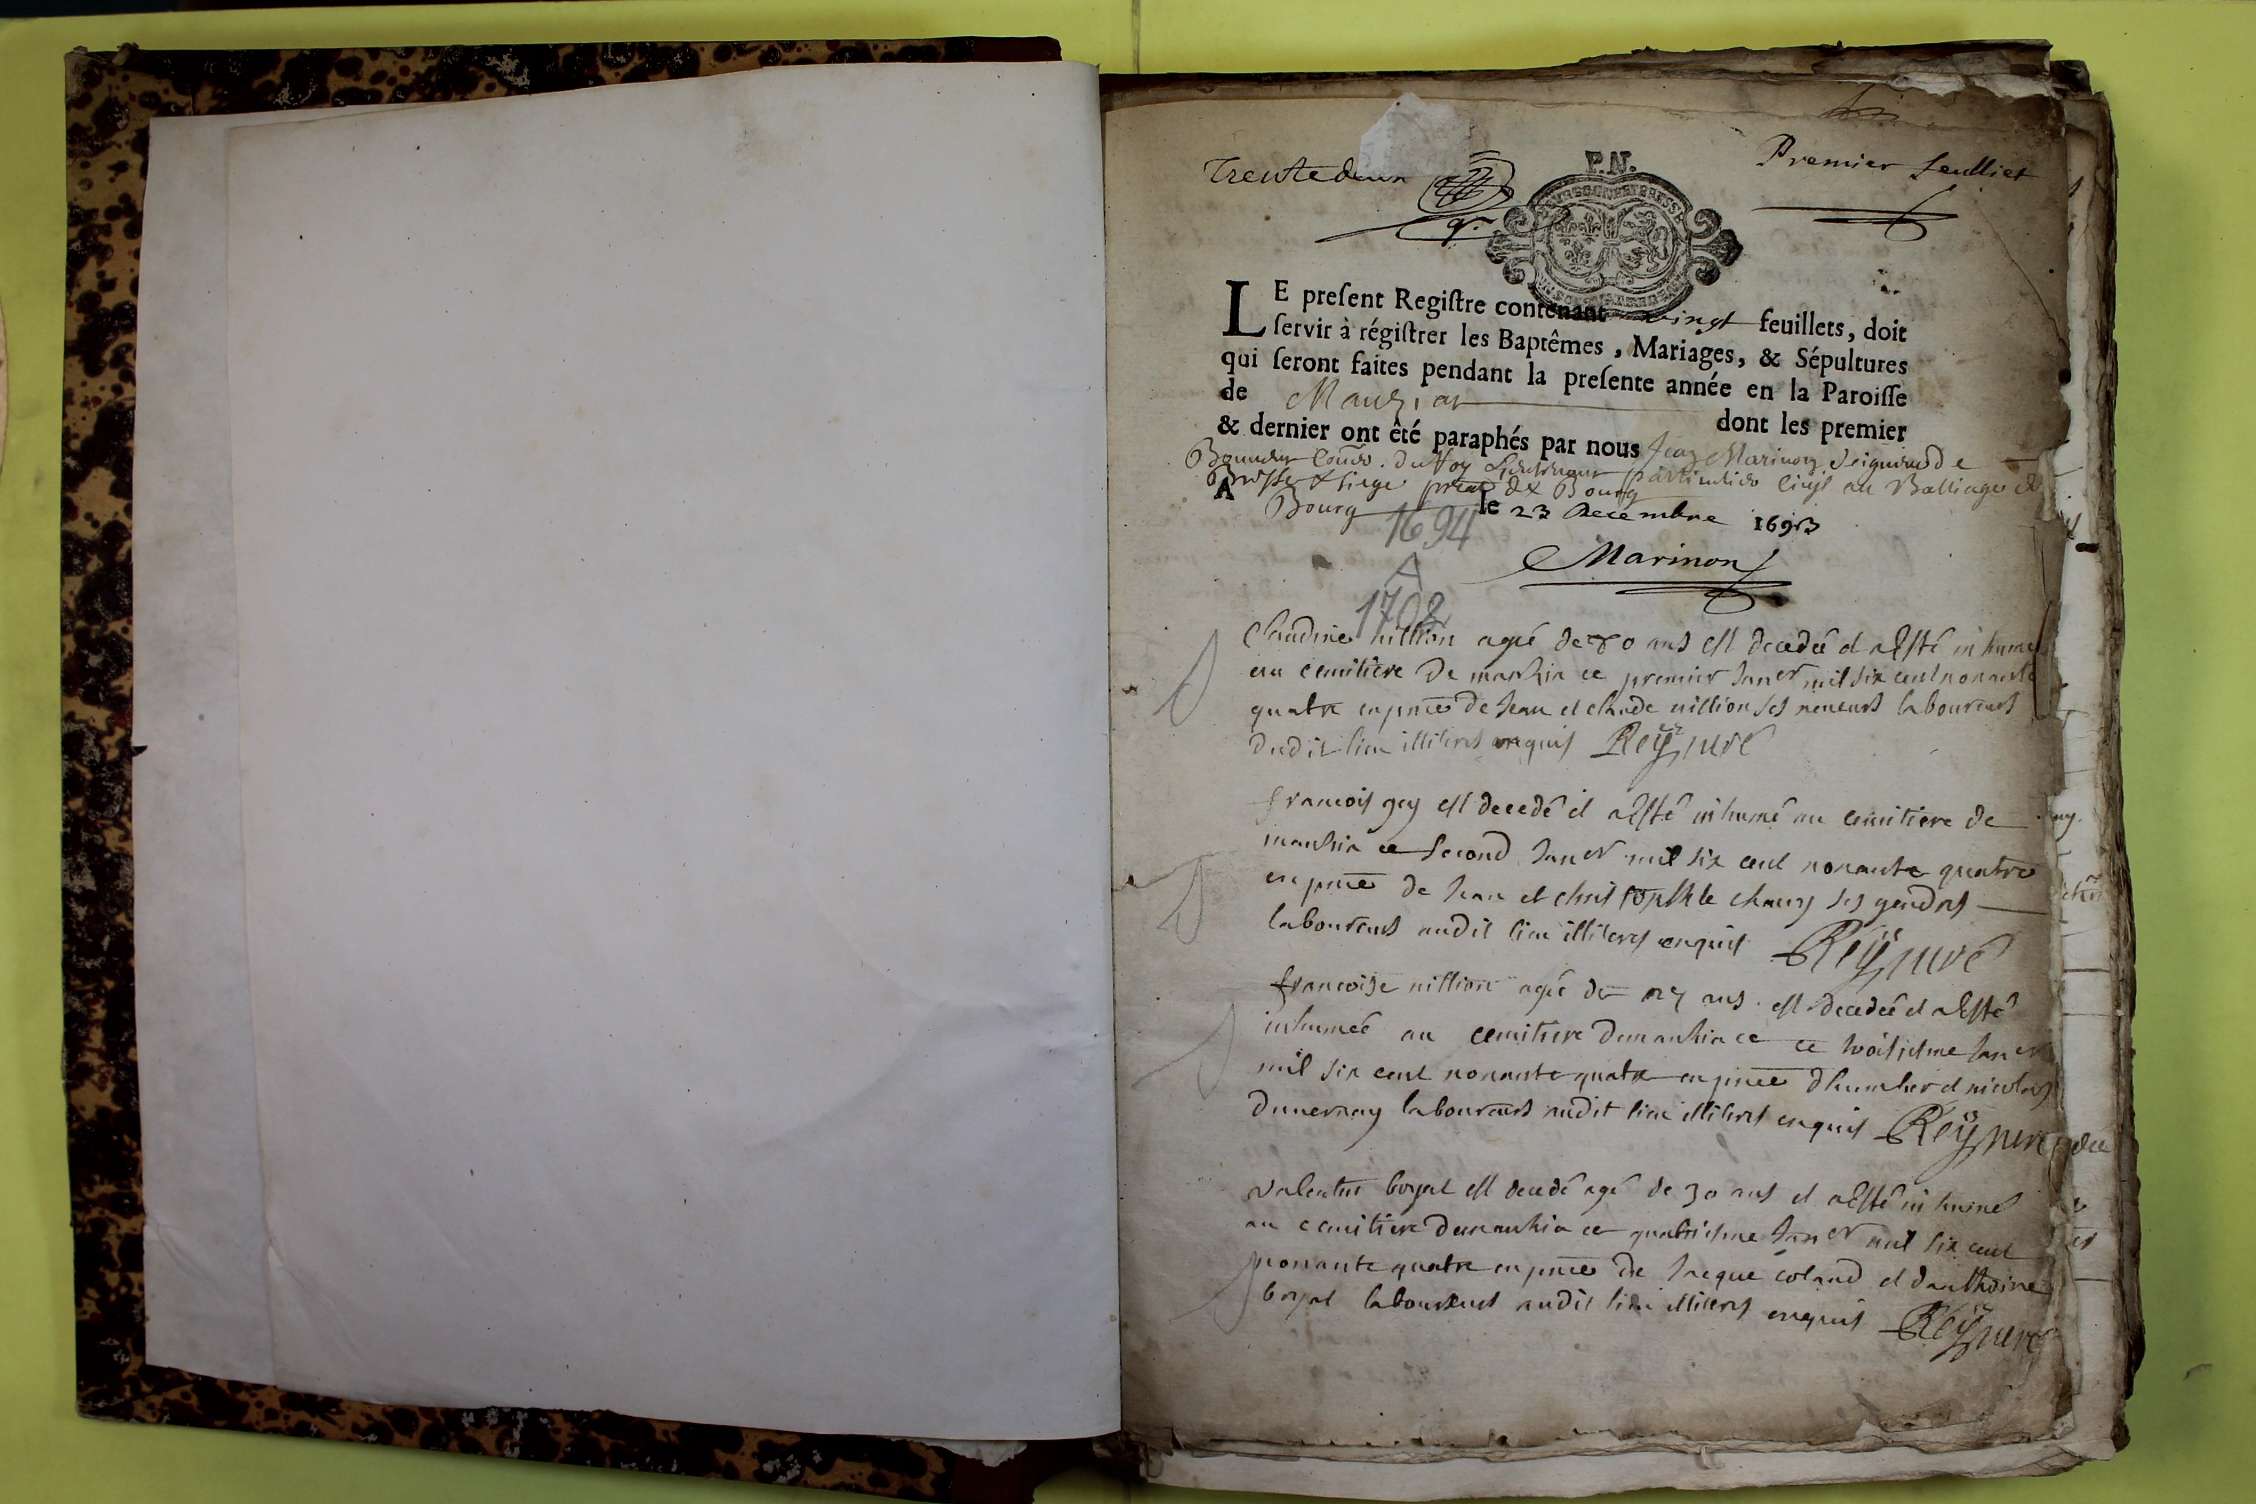 Trente deux
Premier feulliet
P.N.
LE preſent Regiſtre contenant vingt feuillets, doit
ſervir à régiſtrer les Baptêmes, Mariages, & Sépultures
qui ſeront faites pendant la preſente année en la Paroiſſe
de Manziat dont les premier
& dernier ont êté paraphés par nous Jean Marinon Seigneur de
Conser. du Roy Lieutenant particulier Civil au Balliage de
Bresse & siege preal de Bourg
A Bourg le 23 Decembre 1693
1694
A
1702
Marinon
Claudine nillion agée de 80 ans est decedée et a esté inhumé
au cemitiere de manzia ce premier Janer mil six cent nonante
quatre en pnce de Jean et claude nillion ses neueurs laboureurs
dudit lieu illiteres enquis Reÿ, curé
francois gey est decedé et a esté inhumé au cemitiere de
manzia ce second Janer mil six cent nonante quatre
en pnce de Jean et christophle chaney ses gendres
laboureurs audit lieu illiteres enquis Reÿ, curé
francoise nillion agée de ans est decedée et a esté
inhumée au cemitiere de manzia ce ce troisiesme Janer
mil six cent nonante quatre en pnce d'humber et nicolas
dunernay laboureurs audit lieu illiteres enquis Reÿ, curé
valentin boyat est decedé agé de 30 ans et a esté inhumé
au cemitiere de manzia ce quatriesme Janer mil six cent
nonante quatre en pnce de Jacque coland et d'anthoine
boyat laboureurs audit lieu illiteres enquis Reÿ, curé